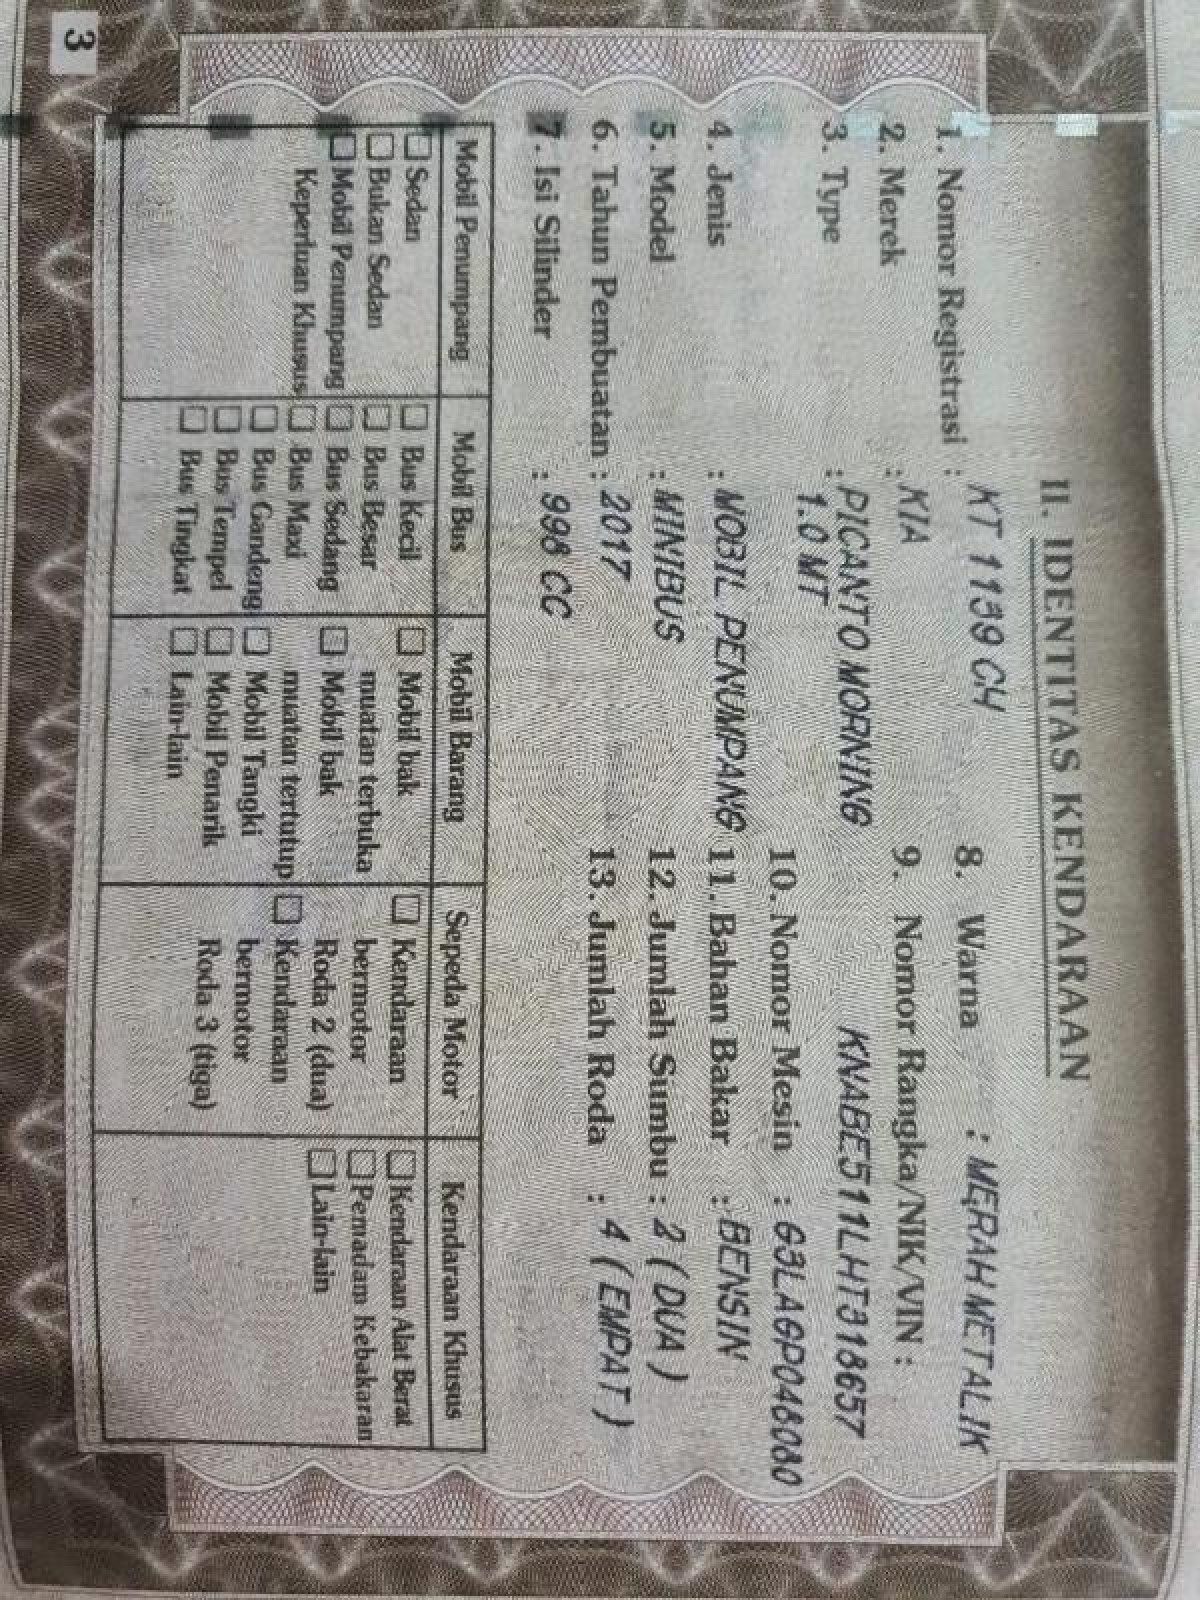 II. IDENTITAS KENDARAAN
1. Nomor Registrasi : KT 1139 CH
2. Merek : KIA
3. Type : PICANTO MORNING
1.0 MT
4. Jenis : MOBIL PENUMPANG
5. Model : MINIBUS
6. Tahun Pembuatan : 2017
7. Isi Silinder : 998 CC
8. Warna : MERAH METALIK
9. Nomor Rangka/NIK/VIN :
KNABE511LHT318657
10. Nomor Mesin : G3LAGP048080
11. Bahan Bakar : BENSIN
12. Jumlah Sumbu : 2 ( DUA )
13. Jumlah Roda : 4 ( EMPAT )
Mobil Penumpang
Sedan
Bukan Sedan
Mobil Penumpang
Keperluan Khusus
Mobil Bus
Bus Kecil
Bus Besar
Bus Sedang
Bus Maxi
Bus Gandeng
Bus Tempel
Bus Tingkat
Mobil Barang
Mobil bak
muatan terbuka
Mobil bak
muatan tertutup
Mobil Tangki
Mobil Penarik
Lain-lain
Sepeda Motor
Kendaraan
bermotor
Roda 2 (dua)
Kendaraan
bermotor
Roda 3 (tiga)
Kendaraan Khusus
Kendaraan Alat Berat
Pemadam Kebakaran
Lain-lain
3